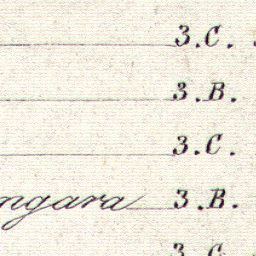 3.C.
3.B.
3.C.
ngara 3.B.
3.C